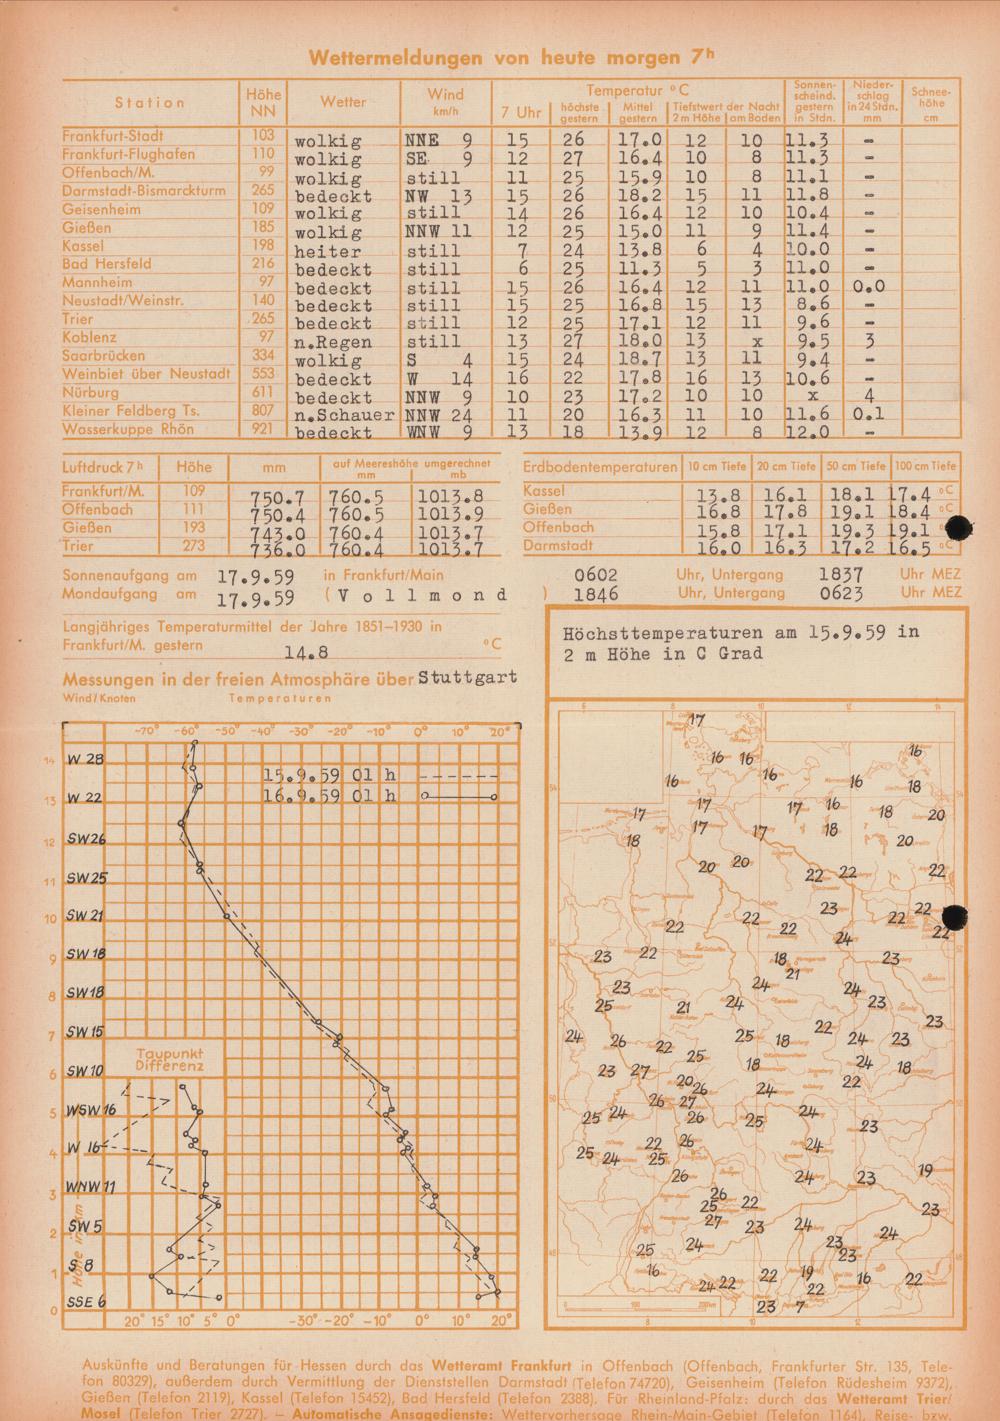 Wettermeldungen von heute morgen 7h
Station Höhe NN Wetter Wind km/h Temperatur °C 7 Uhr höchste gestern Mittel gestern Tiefstwert der Nacht 2m Höhe am Boden Sonnenscheind. gestern in Stdn. Niederschlag in 24 Stdn. mm Schneehöhe cm
Frankfurt-Stadt 103 wolkig NNE 9 15 26 17.0 12 10 11.3 -
Frankfurt-Flughafen 110 wolkig SE 9 12 27 16.4 10 8 11.3 -
Offenbach/M. 99 wolkig still 11 25 15.9 10 8 11.1 -
Darmstadt-Bismarckturm 265 bedeckt NW 13 15 26 18.2 15 11 11.8 -
Geisenheim 109 wolkig still 14 26 16.4 12 10 10.4 -
Gießen 185 wolkig NNW 11 12 25 15.0 11 9 11.4 -
Kassel 198 heiter still 7 24 13.8 6 4 10.0 -
Bad Hersfeld 216 bedeckt still 6 25 11.3 5 3 11.0 -
Mannheim 97 bedeckt still 15 26 16.4 12 11 11.0 0.0
Neustadt/Weinstr. 140 bedeckt still 15 25 16.8 15 13 8.6 -
Trier 265 bedeckt still 12 25 17.1 12 11 9.6 -
Koblenz 97 n.Regen still 13 27 18.0 13 x 9.5 3
Saarbrücken 334 wolkig S 4 15 24 18.7 13 11 9.4 -
Weinbiet über Neustadt 553 bedeckt W 14 16 22 17.8 16 13 10.6 -
Nürburg 611 bedeckt NNW 9 10 23 17.2 10 10 x 4
Kleiner Feldberg Ts. 807 n.Schauer NNW 24 11 20 16.3 11 10 11.6 0.1
Wasserkuppe Rhön 921 bedeckt WNW 9 13 18 13.9 12 8 12.0 -
Luftdruck 7h Höhe mm auf Meereshöhe umgerechnet mm mb
Frankfurt/M. 109 750.7 760.5 1013.8
Offenbach 111 750.4 760.5 1013.9
Gießen 193 743.0 760.4 1013.7
Trier 273 736.0 760.4 1013.7
Erdbodentemperaturen 10 cm Tiefe 20 cm Tiefe 50 cm Tiefe 100 cm Tiefe
Kassel 13.8 16.1 18.1 17.4 °C
Gießen 16.8 17.8 19.1 18.4 °C
Offenbach 15.8 17.1 19.3 19.1 °C
Darmstadt 16.0 16.3 17.2 16.5 °C
Sonnenaufgang am 17.9.59 in Frankfurt/Main 0602 Uhr, Untergang 1837 Uhr MEZ
Mondaufgang am 17.9.59 (Vollmond) 1846 Uhr, Untergang 0623 Uhr MEZ
Langjähriges Temperaturmittel der Jahre 1851–1930 in
Frankfurt/M. gestern 14.8 °C
Messungen in der freien Atmosphäre über Stuttgart
Wind/Knoten Temperaturen
-70° -60° -50° -40° -30° -20° -10° 0° 10° 20°
14 W 28
15.9.59 01 h
13 W 22 16.9.59 01 h
12 SW 26
11 SW 25
10 SW 21
9 SW 18
8 SW 18
7 SW 15
Taupunkt
Differenz
6 SW 10
5 WSW 16
4 W 16
3 WNW 11
2 SW 5
1 S 8
0 SSE 6
Höhe in km
20° 15° 10° 5° 0° -30° -20° -10° 0° 10° 20°
Höchsttemperaturen am 15.9.59 in
2 m Höhe in C Grad
6 8 10 12 14
17
16 16 16
16 16 16 18
17 17 17 16 18 20
18 17 17 18 20
20 20 22 22 22
22 22 22 23 22 22 22
24
23 22 18 21 23
23 25 21 24 24 24 23
24 26 22 25 18 22 24 23 23
23 27 25 18 24 18
20 26 24 22
25 24 26 27 26 25 24 23
25 24 22 25 26 24
26 24 23 19
26 25 27 22 23 24 23
25 24 23 23 24
16 24 22 22 19 22 16 22
23 7
0 100 200km
8 10 12
Auskünfte und Beratungen für Hessen durch das Wetteramt Frankfurt in Offenbach (Offenbach, Frankfurter Str. 135, Tele-
fon 80329), außerdem durch Vermittlung der Dienststellen Darmstadt (Telefon 74720), Geisenheim (Telefon Rüdesheim 9372),
Gießen (Telefon 2119), Kassel (Telefon 15452), Bad Hersfeld (Telefon 2388). Für Rheinland-Pfalz: durch das Wetteramt Trier/
Mosel (Telefon Trier 2727). — Automatische Ansagedienste: Wettervorhersage Rhein-Main-Gebiet (Telefon 1164), Reise- bzw.